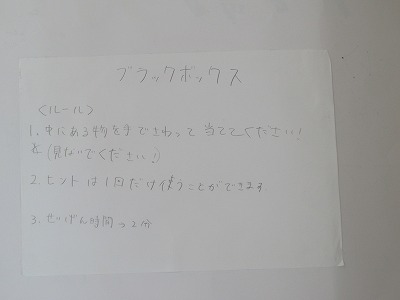 ブラックボックス
<ルール>
1. 中にある物を手でさわって当ててください!
(見ないでください!)
2. ヒントは1回だけ使うことができます
3. せいげん時間→2分